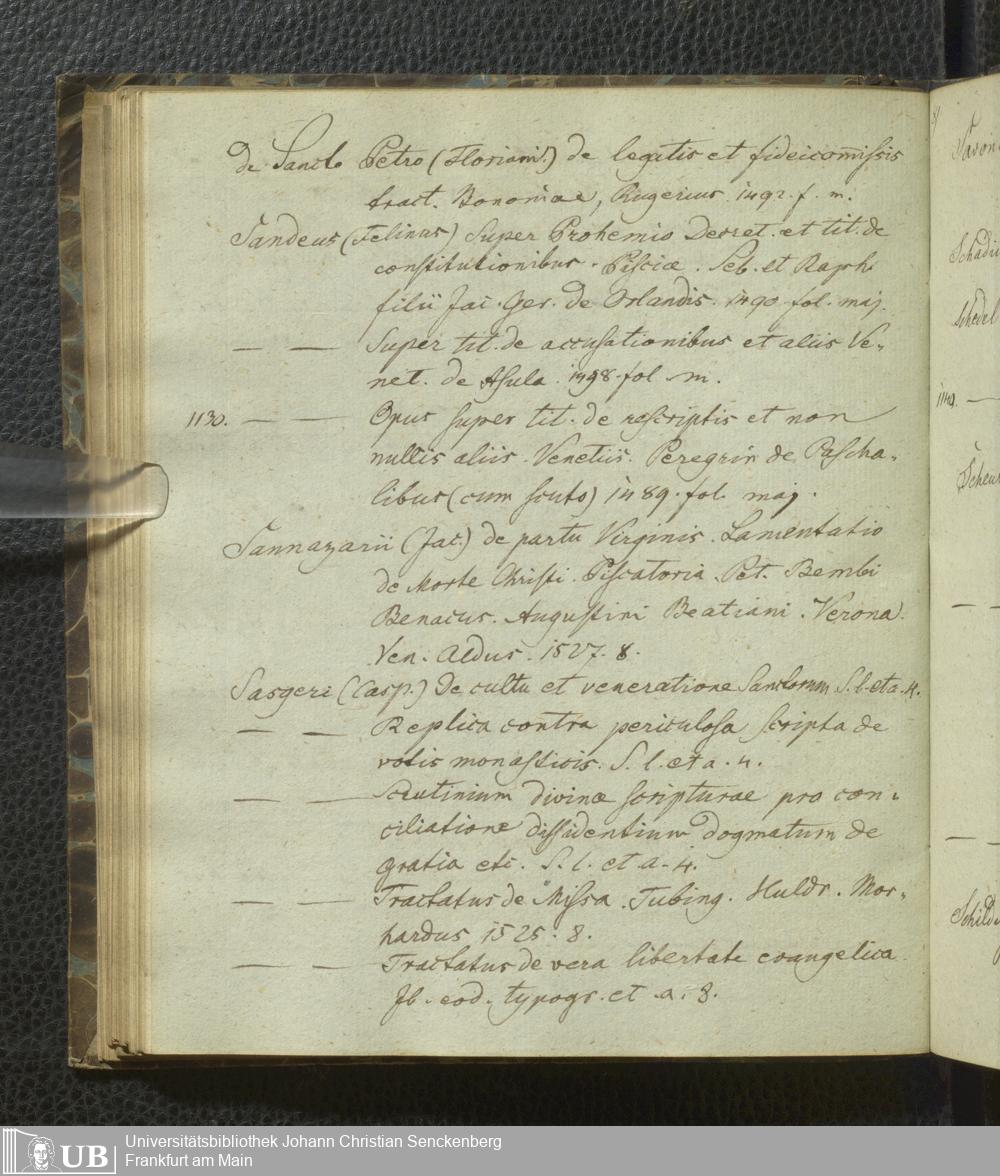 de Sancto Petro (Floriani) de legatis et fideicom̄issis
tract. Bononiae, Rugerius. 1492. f. m.
Sandeus (Felinus) Super Prohemio Decret. et tit. de
constitutionibus. Pisciæ. Seb. et Raph.
filii Jac. Ger. de Orlandis. 1490. fol. maj.
— — Super tit. de accusationibus et aliis Ve-
net. de Asula. 1498. fol. m.
1130. — — Opus super tit. de rescriptis et non
nullis aliis. Venetiis. Peregrin de Pascha-
libus (cum scuto) 1489. fol. maj.
Sannazarii (Jac.) de partu Virginis. Lamentatio
de Morte Christi. Piscatoria. Pet. Bembi
Benacus. Augustini Beatiani. Verona.
Ven. Aldus. 1527. 8.
Sasgeri (Casp.) De cultu et veneratione Sanctorum S. l. et a. 4.
— — Replica contra periculosa scripta de
votis monasticis. S. l. et a. 4.
— — Scrutinium divinæ scripturae pro con-
ciliatione dissidentium dogmatum de
gratia etc. S. l. et a. 4.
— — Tractatus de Missa. Tubing. Huldr. Mor-
hardus 1525. 8.
— — Tractatus de vera libertate evangelica.
Jb. eod. typogr. et a. 8.
Schedel
1140. —
— —
— —
UB
Universitätsbibliothek Johann Christian Senckenberg
Frankfurt am Main